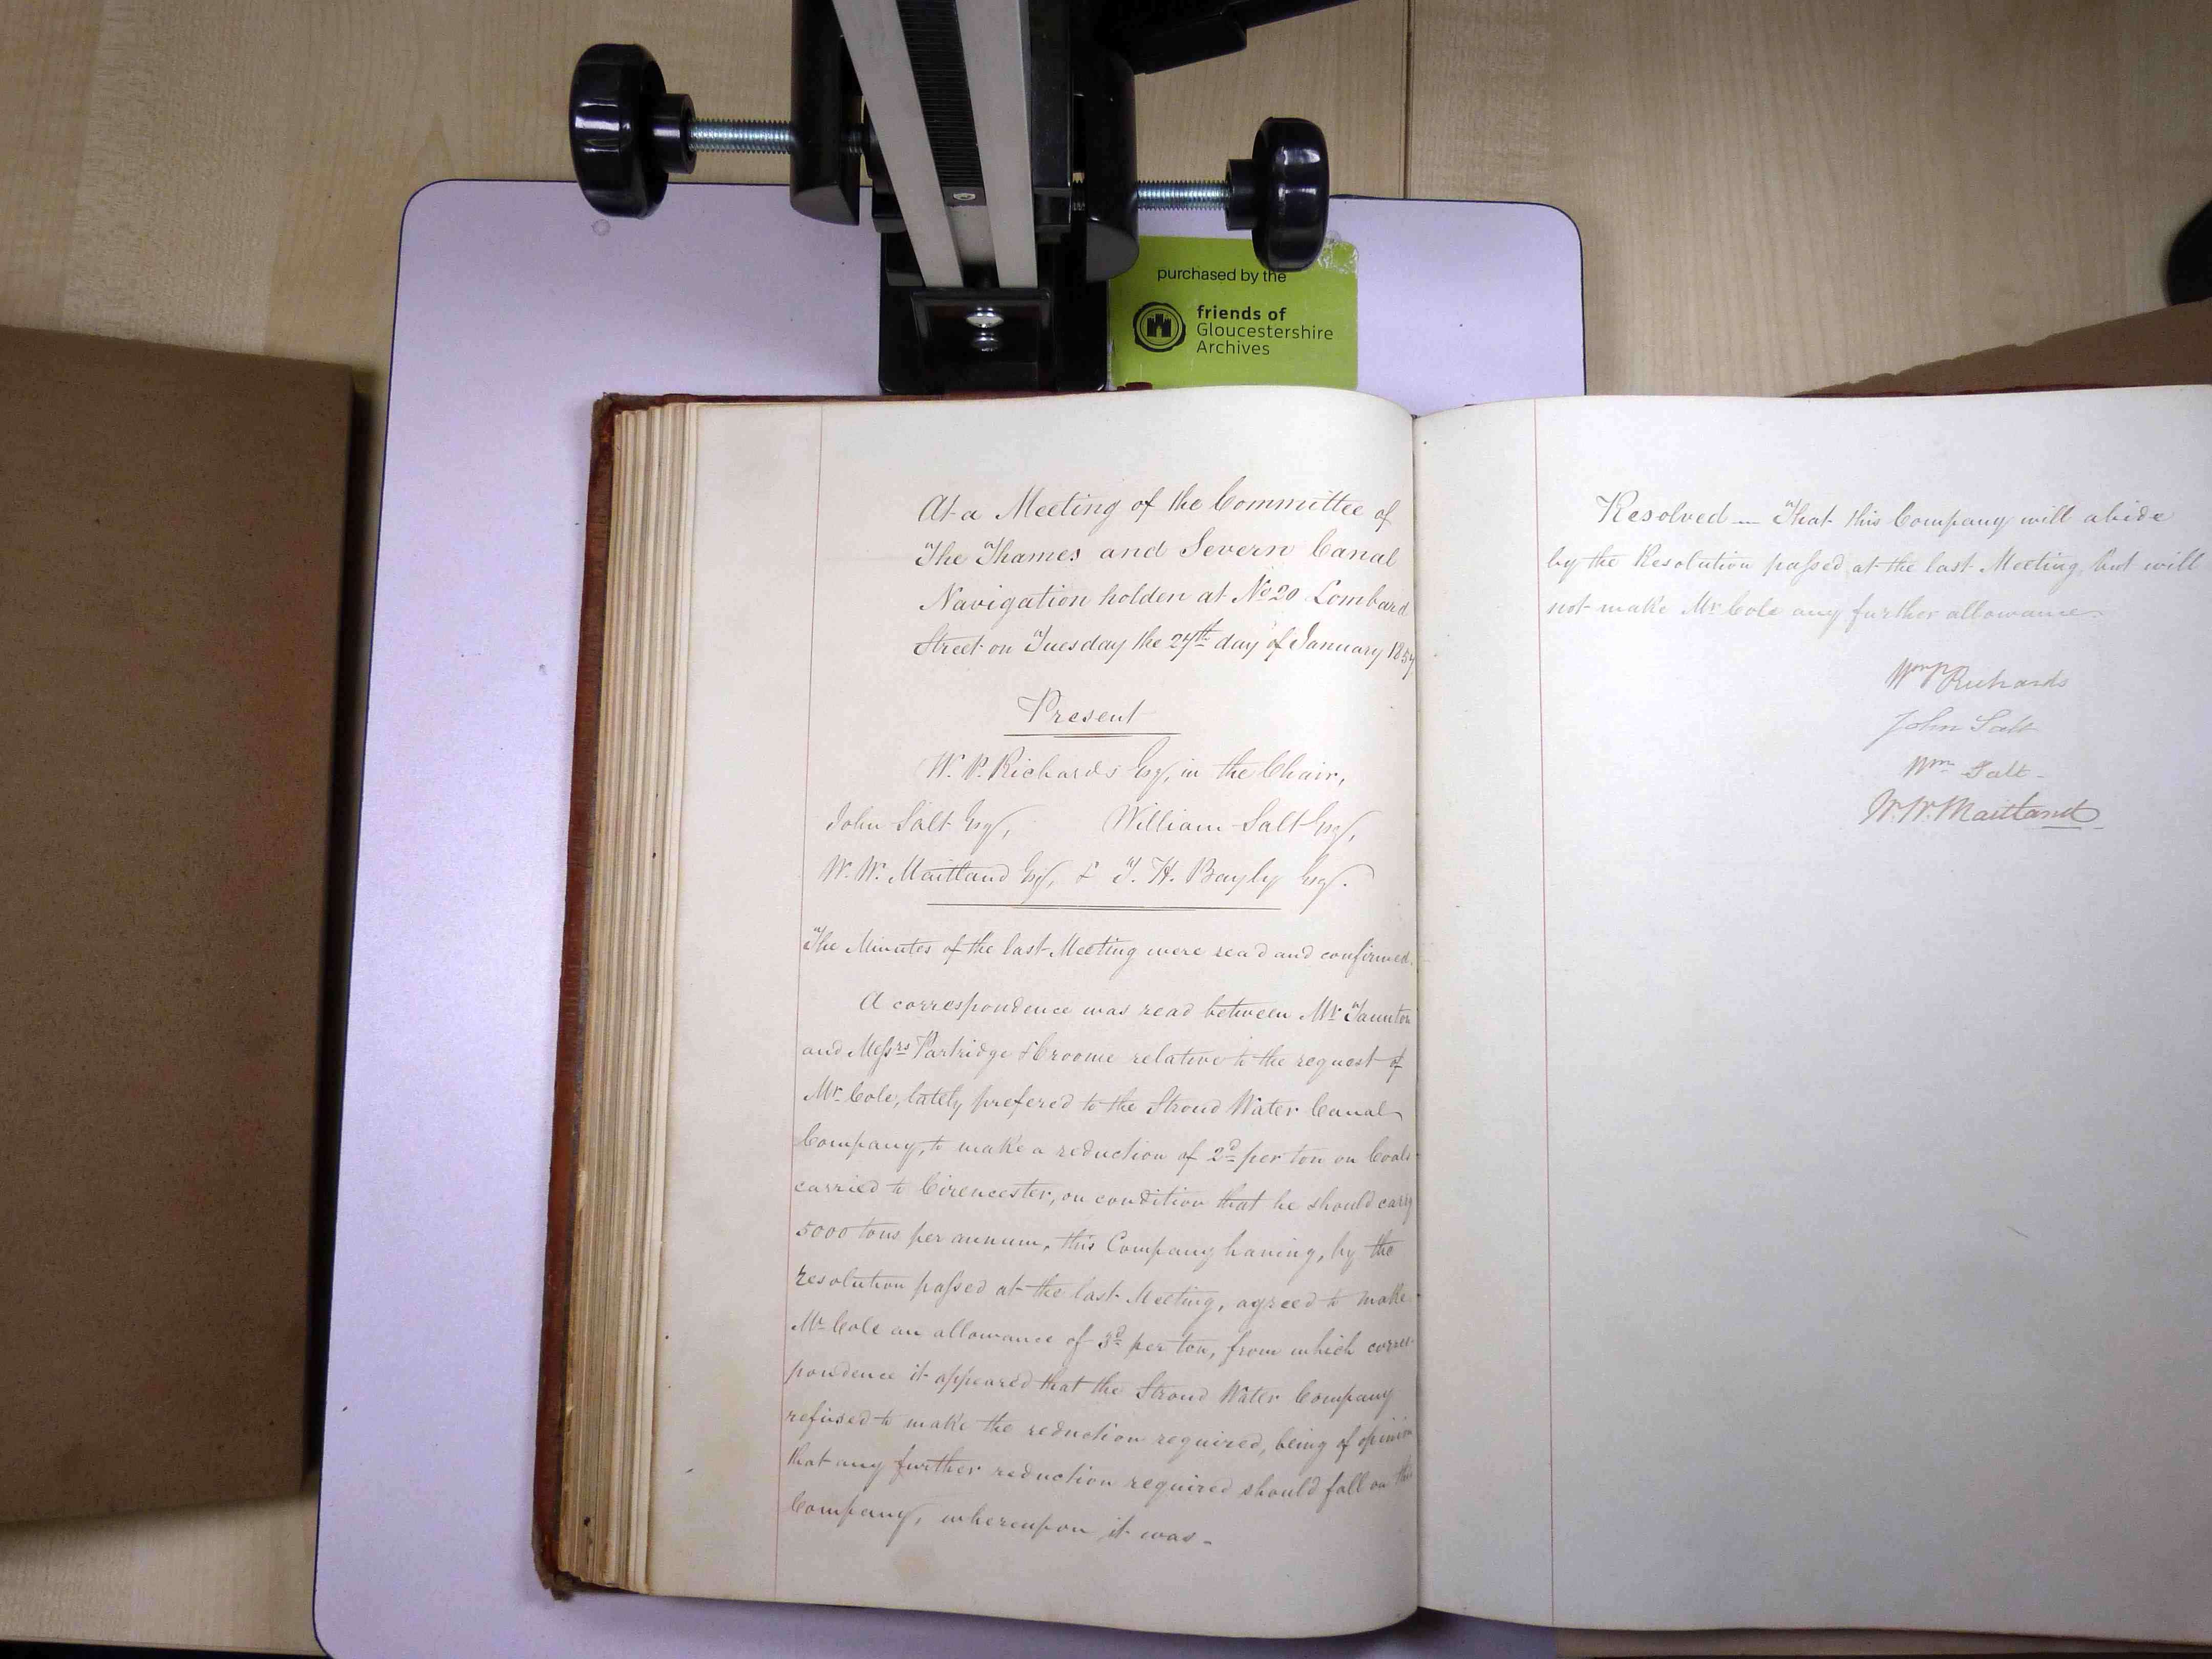 purchased by the
friends of
Gloucestershire
Archives
At a Meeting of the Committee of
The Thames and Severn Canal
Navigation holden at No 20 Lombard
Street on Tuesday the 24th day of January 1854
Present
W. P. Richards Esq, in the Chair,
John Salt Esq, William Salt Esq,
W. W. Maitland Esq, & T. H. Bayly Esq.
The Minutes of the last Meeting were read and confirmed.
A correspondence was read between Mr Taunton
and Messrs Partridge & Croome relative to the request of
Mr Cole, lately prefered to the Stroud Water Canal
Company, to make a reduction of 2d per ton on Coals
carried to Cirencester, on condition that he should carry
5000 tons per annum, this Company having, by the
resolution passed at the last Meeting, agreed to make
Mr Cole an allowance of 3d per ton, from which corres
pondence it appeared that the Stroud Water Company
refused to make the reduction required, being of opinion
that any further reduction required should fall on this
Company, whereupon it was -
Resolved — That this Company will abide
by the Resolution passed at the last Meeting, but will
not make Mr Cole any further allowance.
Wm P Richards
John Salt
Wm Salt -
W. W. Maitland